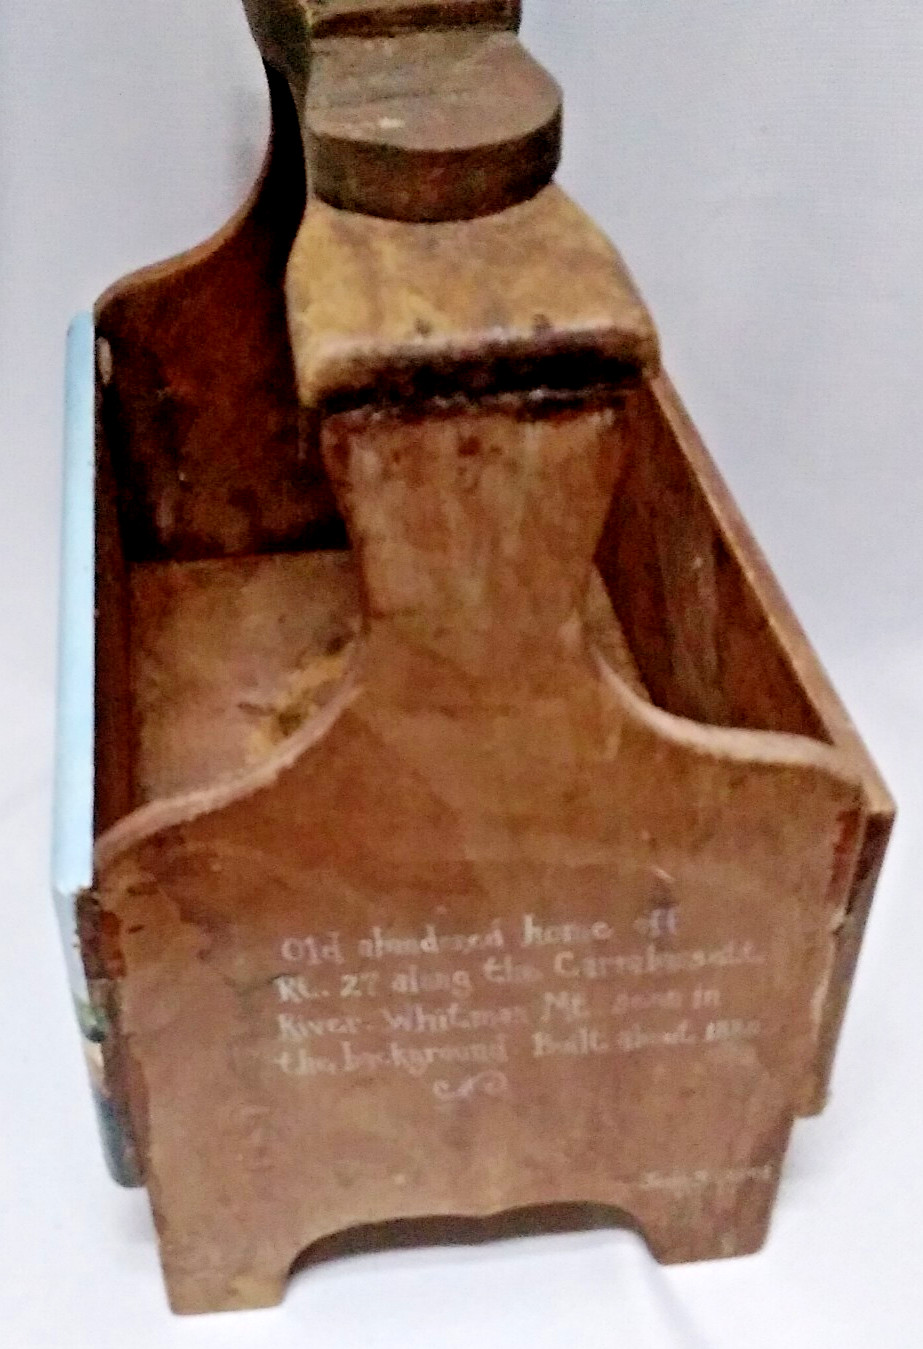 Old abandoned home off
Rt. 27 along the Carrabassett
River. Whitman Mt. seen in
the background Built about